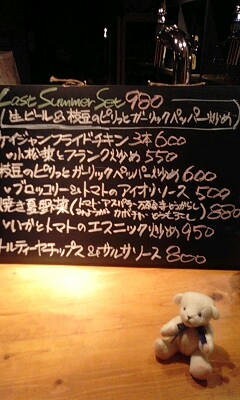 Last Summer Set 980
(生ビール&枝豆のピリッとガーリックペッパー炒め)
ケイジャンフライドチキン 3本 600
小松菜とフランク炒め 550
枝豆のピリッとガーリックペッパー炒め 600
ブロッコリー&トマトのアイオリソース 500
焼き夏野菜(トマト・アスパラ・万願寺とうがらし 880
みょうが カボチャ とうもろこし)
いかとトマトのエスニック炒め 950
トルティーヤチップス &サルサソース 800